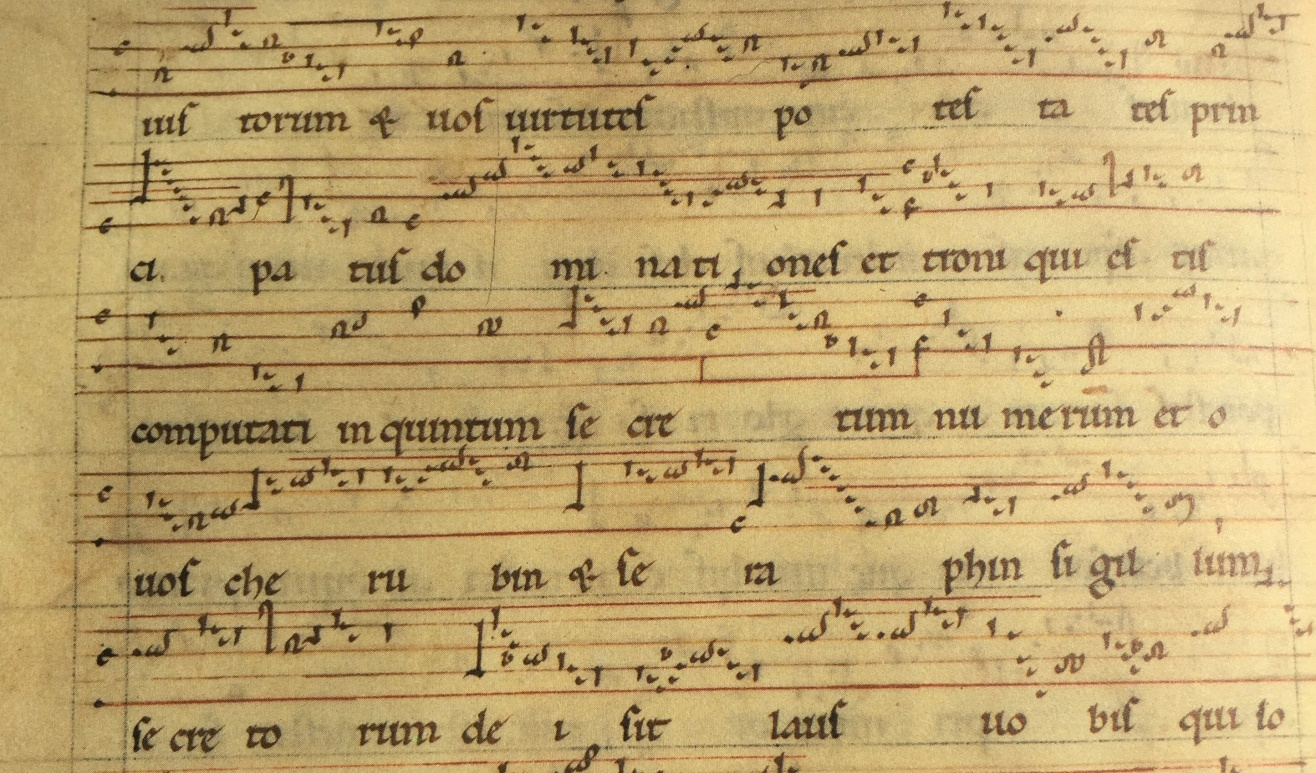 iusſ torum & uoſ uirtuteſ po teſ ta teſ prin
ci pa tuſ do mi na ti oneſ et troni qui eſ tiſ
computati in quintum ſe cre tum nu merum et o
uoſ che ru bin & ſe ra phin ſi gil lum
ſe cre to rum de i ſit lauſ uo biſ qui lo